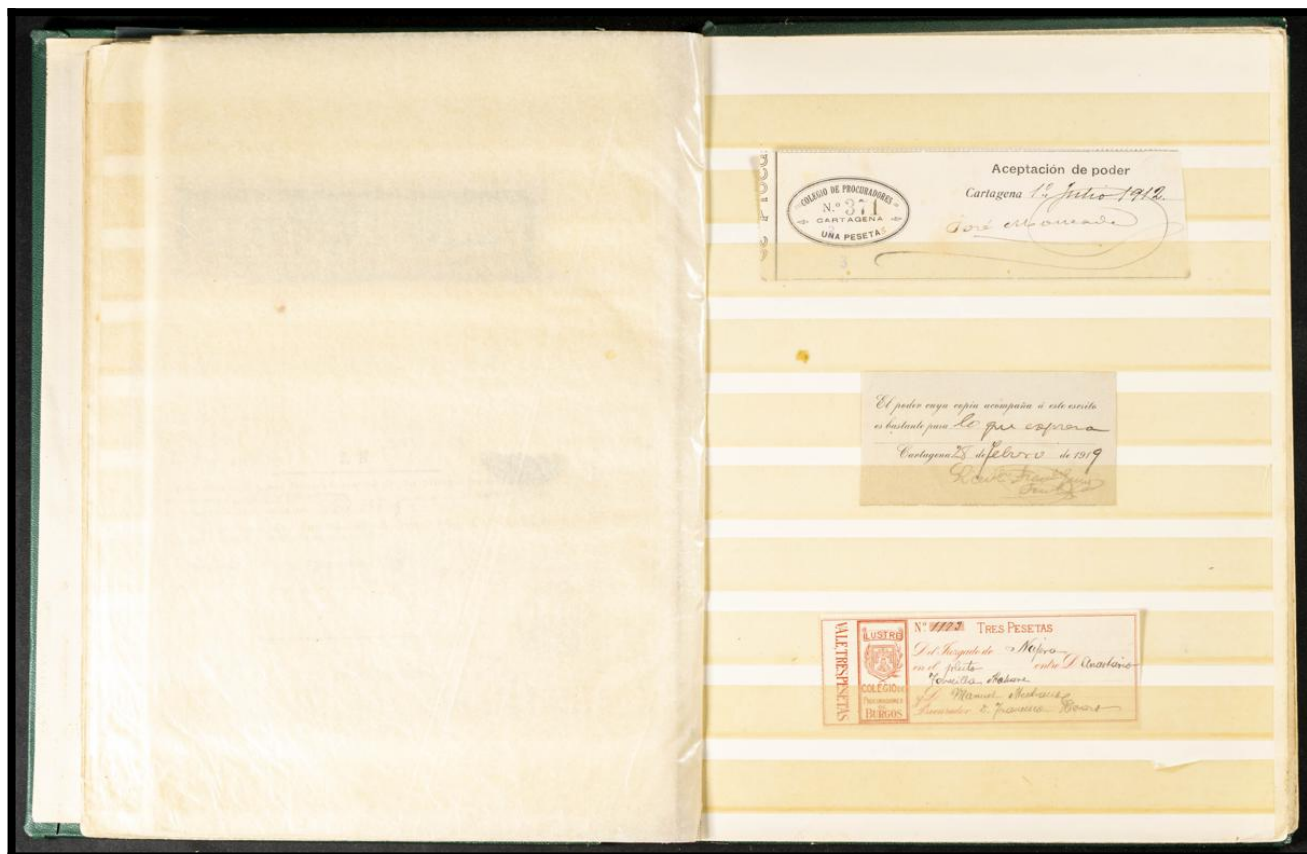 de Procu
Aceptación de poder
COLEGIO DE PROCURADORES
N.º 371
CARTAGENA
UNA PESETA
Cartagena 1º Julio 1912.
José Moncada
3
El poder cuya copia acompaña á este escrito
es bastante para lo que expresa
Cartagena 28 de febrero de 1919
VALE TRES PESETAS
ILUSTRE
COLEGIO DE
PROCURADORES
DE
BURGOS
Nº 1173 TRES PESETAS
Del Juzgado de Nájera
en el pleito entre D. Anastasio
y D. Manuel
Procurador D. Francisco